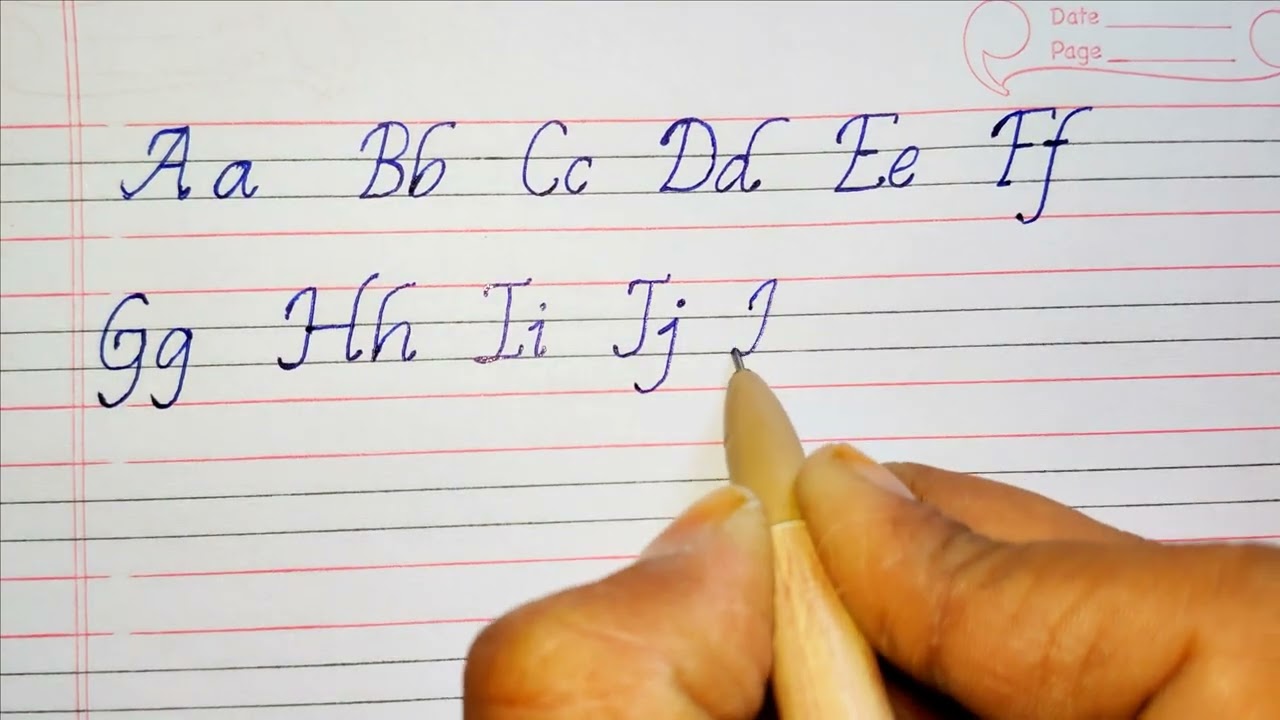 Date
Page
Aa Bb Cc Dd Ee Ff
Gg Hh Ii Jj